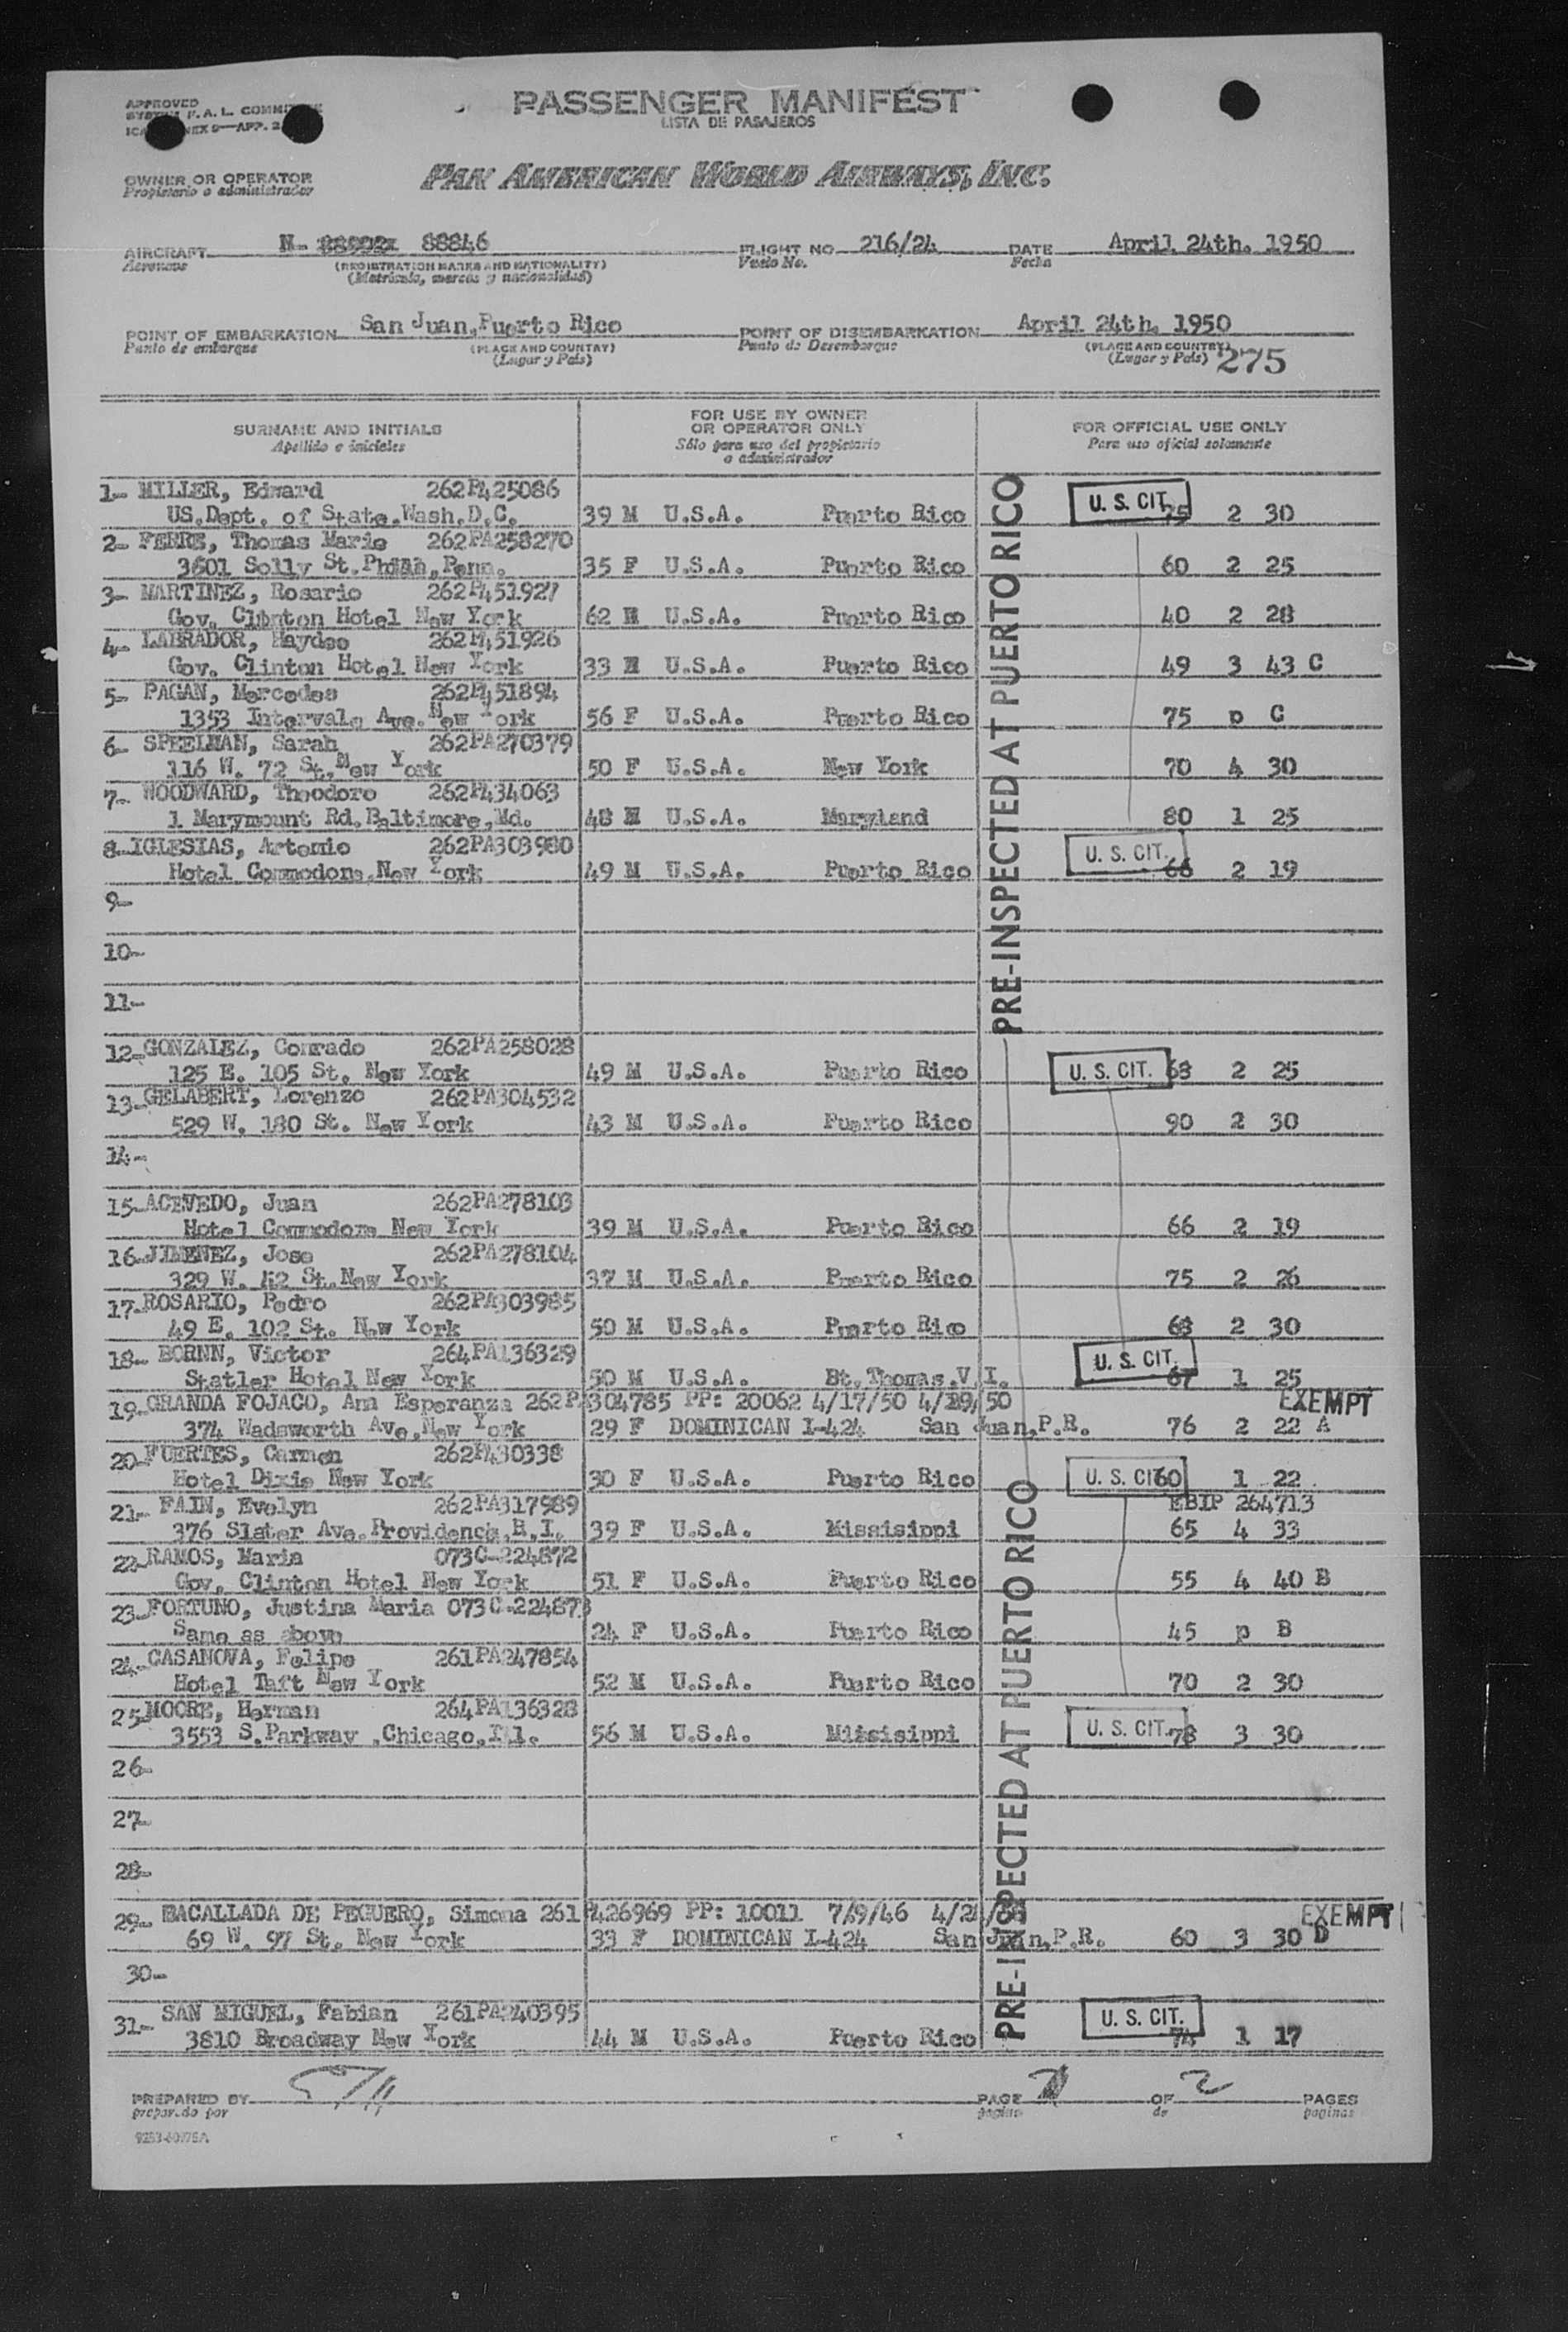 APPROVED
ICA
PASSENGER MANIFEST
LISTA DE PASAJEROS
OWNER OR OPERATOR
Propietario o administrador
PAN AMERICAN WORLD AIRWAYS, INC.
AIRCRAFT N- 88846 FLIGHT NO 216/24 DATE April 24th. 1950
Aeronave (REGISTRATION MARKS AND NATIONALITY) Vuelo No. Fecha
(Matrícula, marcas y nacionalidad)
POINT OF EMBARKATION San Juan, Puerto Rico POINT OF DISEMBARKATION April 24th. 1950
Punto de embarque (PLACE AND COUNTRY) Punto de Desembarque (PLACE AND COUNTRY)
(Lugar y País) (Lugar y País) 275
SURNAME AND INITIALS FOR USE BY OWNER OR OPERATOR ONLY FOR OFFICIAL USE ONLY
Apellido e iniciales Sólo para uso del propietario o administrador Para uso oficial solamente
PRE-INSPECTED AT PUERTO RICO
1- MILLER, Edward 262P425086
US.Dept. of State.Wash.D.C. 39 M U.S.A. Puerto Rico U. S. CIT. 2 30
2- FERRE, Thomas Marie 262PA258270
3601 Solly St.Phila,Penn. 35 F U.S.A. Puerto Rico 60 2 25
3- MARTINEZ, Rosario 262P451927
Gov. Clinton Hotel New York 62 U.S.A. Puerto Rico 40 2 28
4- LABRADOR, Haydee 262P451926
Gov. Clinton Hotel New York 33 U.S.A. Puerto Rico 49 3 43 C
5- PAGAN, Mercedes 262P451894
1353 Intervale Ave.New York 56 F U.S.A. Puerto Rico 75 p C
6- SPEELMAN, Sarah 262PA270379
116 W. 72 St.New York 50 F U.S.A. New York 70 4 30
7- WOODWARD, Theodore 262P434063
1 Marymount Rd.Baltimore,Md. 48 M U.S.A. Maryland 80 1 25
8-IGLESIAS, Artemio 262PA303980
Hotel Commodore,New York 49 M U.S.A. Puerto Rico U. S. CIT. 66 2 19
9-
10-
11-
12-GONZALEZ, Conrado 262PA258028
125 E. 105 St. New York 49 M U.S.A. Puerto Rico U. S. CIT. 63 2 25
13-GELABERT, Lorenzo 262PA304532
529 W. 180 St. New York 43 M U.S.A. Puerto Rico 90 2 30
14-
15-ACEVEDO, Juan 262PA278103
Hotel Commodore New York 39 M U.S.A. Puerto Rico 66 2 19
16-JIMENEZ, Jose 262PA278104
329 W. 42 St.New York 37 M U.S.A. Puerto Rico 75 2 26
17-ROSARIO, Pedro 262PA303985
49 E. 102 St. New York 50 M U.S.A. Puerto Rico 63 2 30
18- BORNN, Victor 264PA136329
Statler Hotel New York 50 M U.S.A. St.Thomas.V.I. U. S. CIT. 67 1 25
19-GRANDA FOJACO, Ana Esperanza 262PA304785 PP: 20062 4/17/50 4/19/50 EXEMPT
374 Wadsworth Ave,New York 29 F DOMINICAN I-424 San Juan,P.R. 76 2 22 A
20-FUERTES, Carmen 262P430338
Hotel Dixie New York 30 F U.S.A. Puerto Rico U. S. CIT 60 1 22
21- FAIN, Evelyn 262PA317989 EBIP 264713
376 Slater Ave.Providence,R.I. 39 F U.S.A. Missisippi 65 4 33
22-RAMOS, Maria 073C-224872
Gov. Clinton Hotel New York 51 F U.S.A. Puerto Rico 55 4 40 B
23-FORTUNO, Justina Maria 073C-224873
Same as above 24 F U.S.A. Puerto Rico 45 p B
24-CASANOVA, Felipe 261PA247854
Hotel Taft New York 52 M U.S.A. Puerto Rico 70 2 30
25-MOORE, Herman 264PA136328
3553 S.Parkway ,Chicago,Ill. 56 M U.S.A. Missisippi U. S. CIT. 78 3 30
26-
27-
28-
29- BACALLADA DE PEGUERO, Simona 261P426969 PP: 10011 7/9/46 EXEMPT
69 W. 97 St. New York 33 F DOMINICAN I-424 San Juan,P.R. 60 3 30 D
30-
31- SAN MIGUEL, Fabian 261PA240395
3810 Broadway New York 44 M U.S.A. Puerto Rico U. S. CIT. 74 1 17
PRE-INSPECTED AT PUERTO RICO
PREPARED BY PAGE OF 2 PAGES
preparado por pagina de paginas